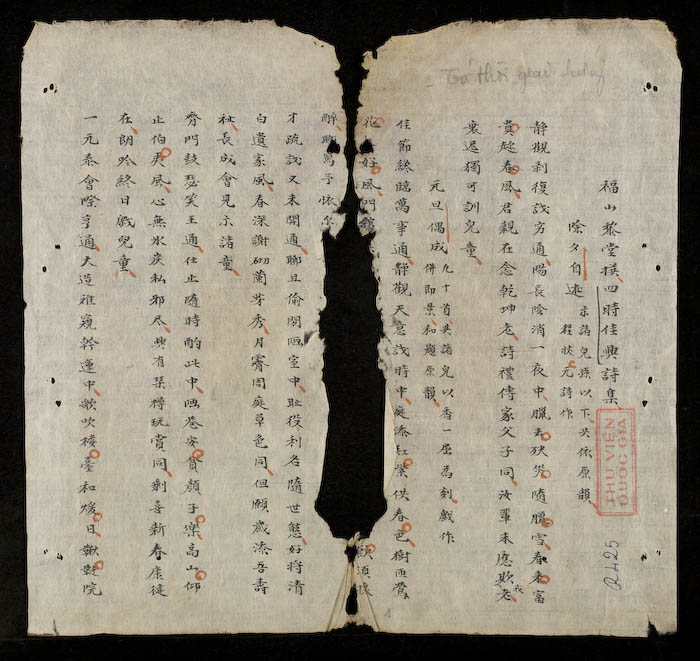 Tứ thời giai hứng
福山黎堂撰四時佳興詩集
除夕自述 示諸兒孫以下共依原韻
程狀元詩作
靜觀剥復識方通陽長陰消一夜中臘去殃災隨臘雪春來富
貴趁春風君親在念乾坤老詩禮傳家父子同汝輩未應欺我老
衰遲獨可訓兒童
元旦偶成 九十首共諸兒以香一屈為刻戲作
俱即景和題原韻
佳節纔臨萬事通靜觀天意識時中庭添紅紫供春色樹囀鶯
花 好風門
醉聊寫予懷
才疏識又未開通聊且偷閒陋室中耻役利名隨世態好將清
白遺家風春深謝砌蘭芽秀月霽周庭草色同但願歲添吾壽
祉長成會見示諸童
齊門鼓瑟笑王通仕止隨時酌此中陋巷安貧顏子樂高山仰
止伯夷風心無氷炭私邪尽興有琴樽玩賞同剩喜新春康健
在朗吟終日戲兒童
一元泰會際亨通大造難窺斡運中歌吹樓臺和煖日鞦韆院
THƯ VIỆN
QUỐC GIA
R425